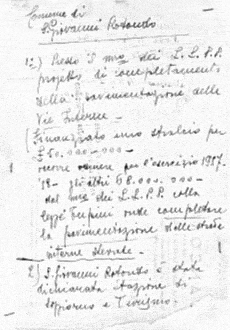 Comune di
S. Giovanni Rotondo
1°) Presso S. M. dei LL.PP.
progetto di completamento
della pavimentazione delle
Vie Interne.
Finanziato uno stralcio per
£ 50.000.000
per l'esercizio 1957.
gli altri 68.000.000
dal dei LL.PP. colla
legge onde completare
la pavimentazione delle strade
interne
2) S. Giovanni Rotondo è stata
dichiarata stazione di
soggiorno e Turismo